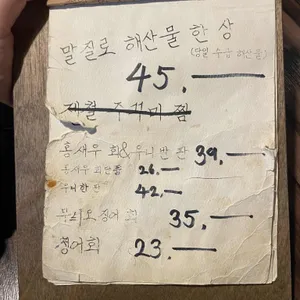 말질로 해산물 한 상
(당일 수급 해산물)
45.—
제철 주꾸미 찜
홍새우 회&우니 반 판 39.—
홍새우 회 단품 26.—
우니 한 판 42.—
무늬오징어 회 35.—
청어회 23.—